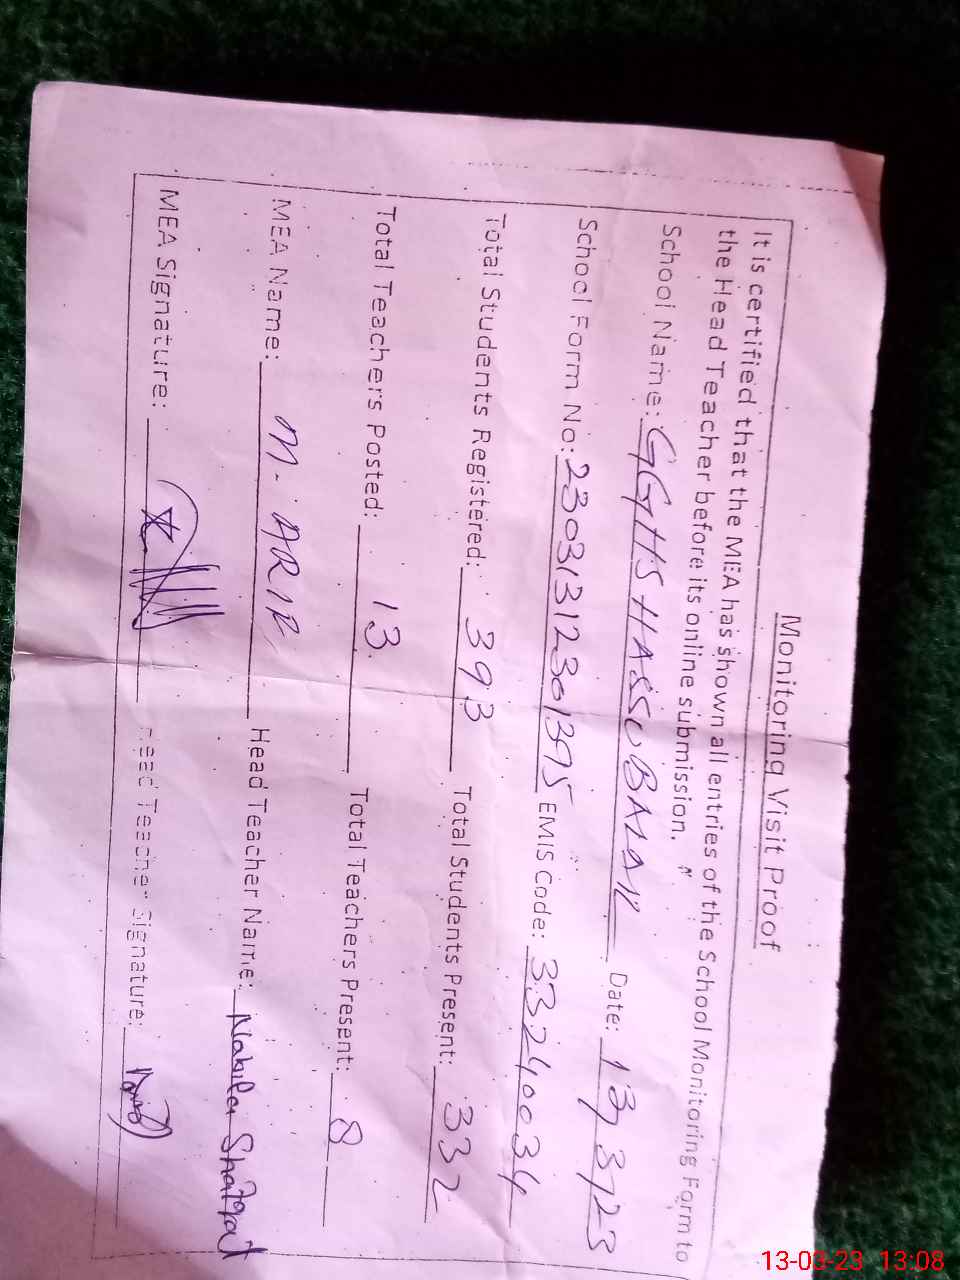 Monitoring Visit Proof
It is certified that the MEA has shown all entries of the School Monitoring Form to
the Head Teacher before its online submission.
School Name: GGHS HASSU BALAIL Date: 13/3/23
School Form No: 23031312301395 EMIS Code: 33240034
Total Students Registered: 393 Total Students Present: 332
Total Teachers Posted: 13 Total Teachers Present: 8
MEA Name: M. ARIF Head Teacher Name: Nabila Shafqat
MEA Signature: Head Teacher Signature:
13-03-23 13:08